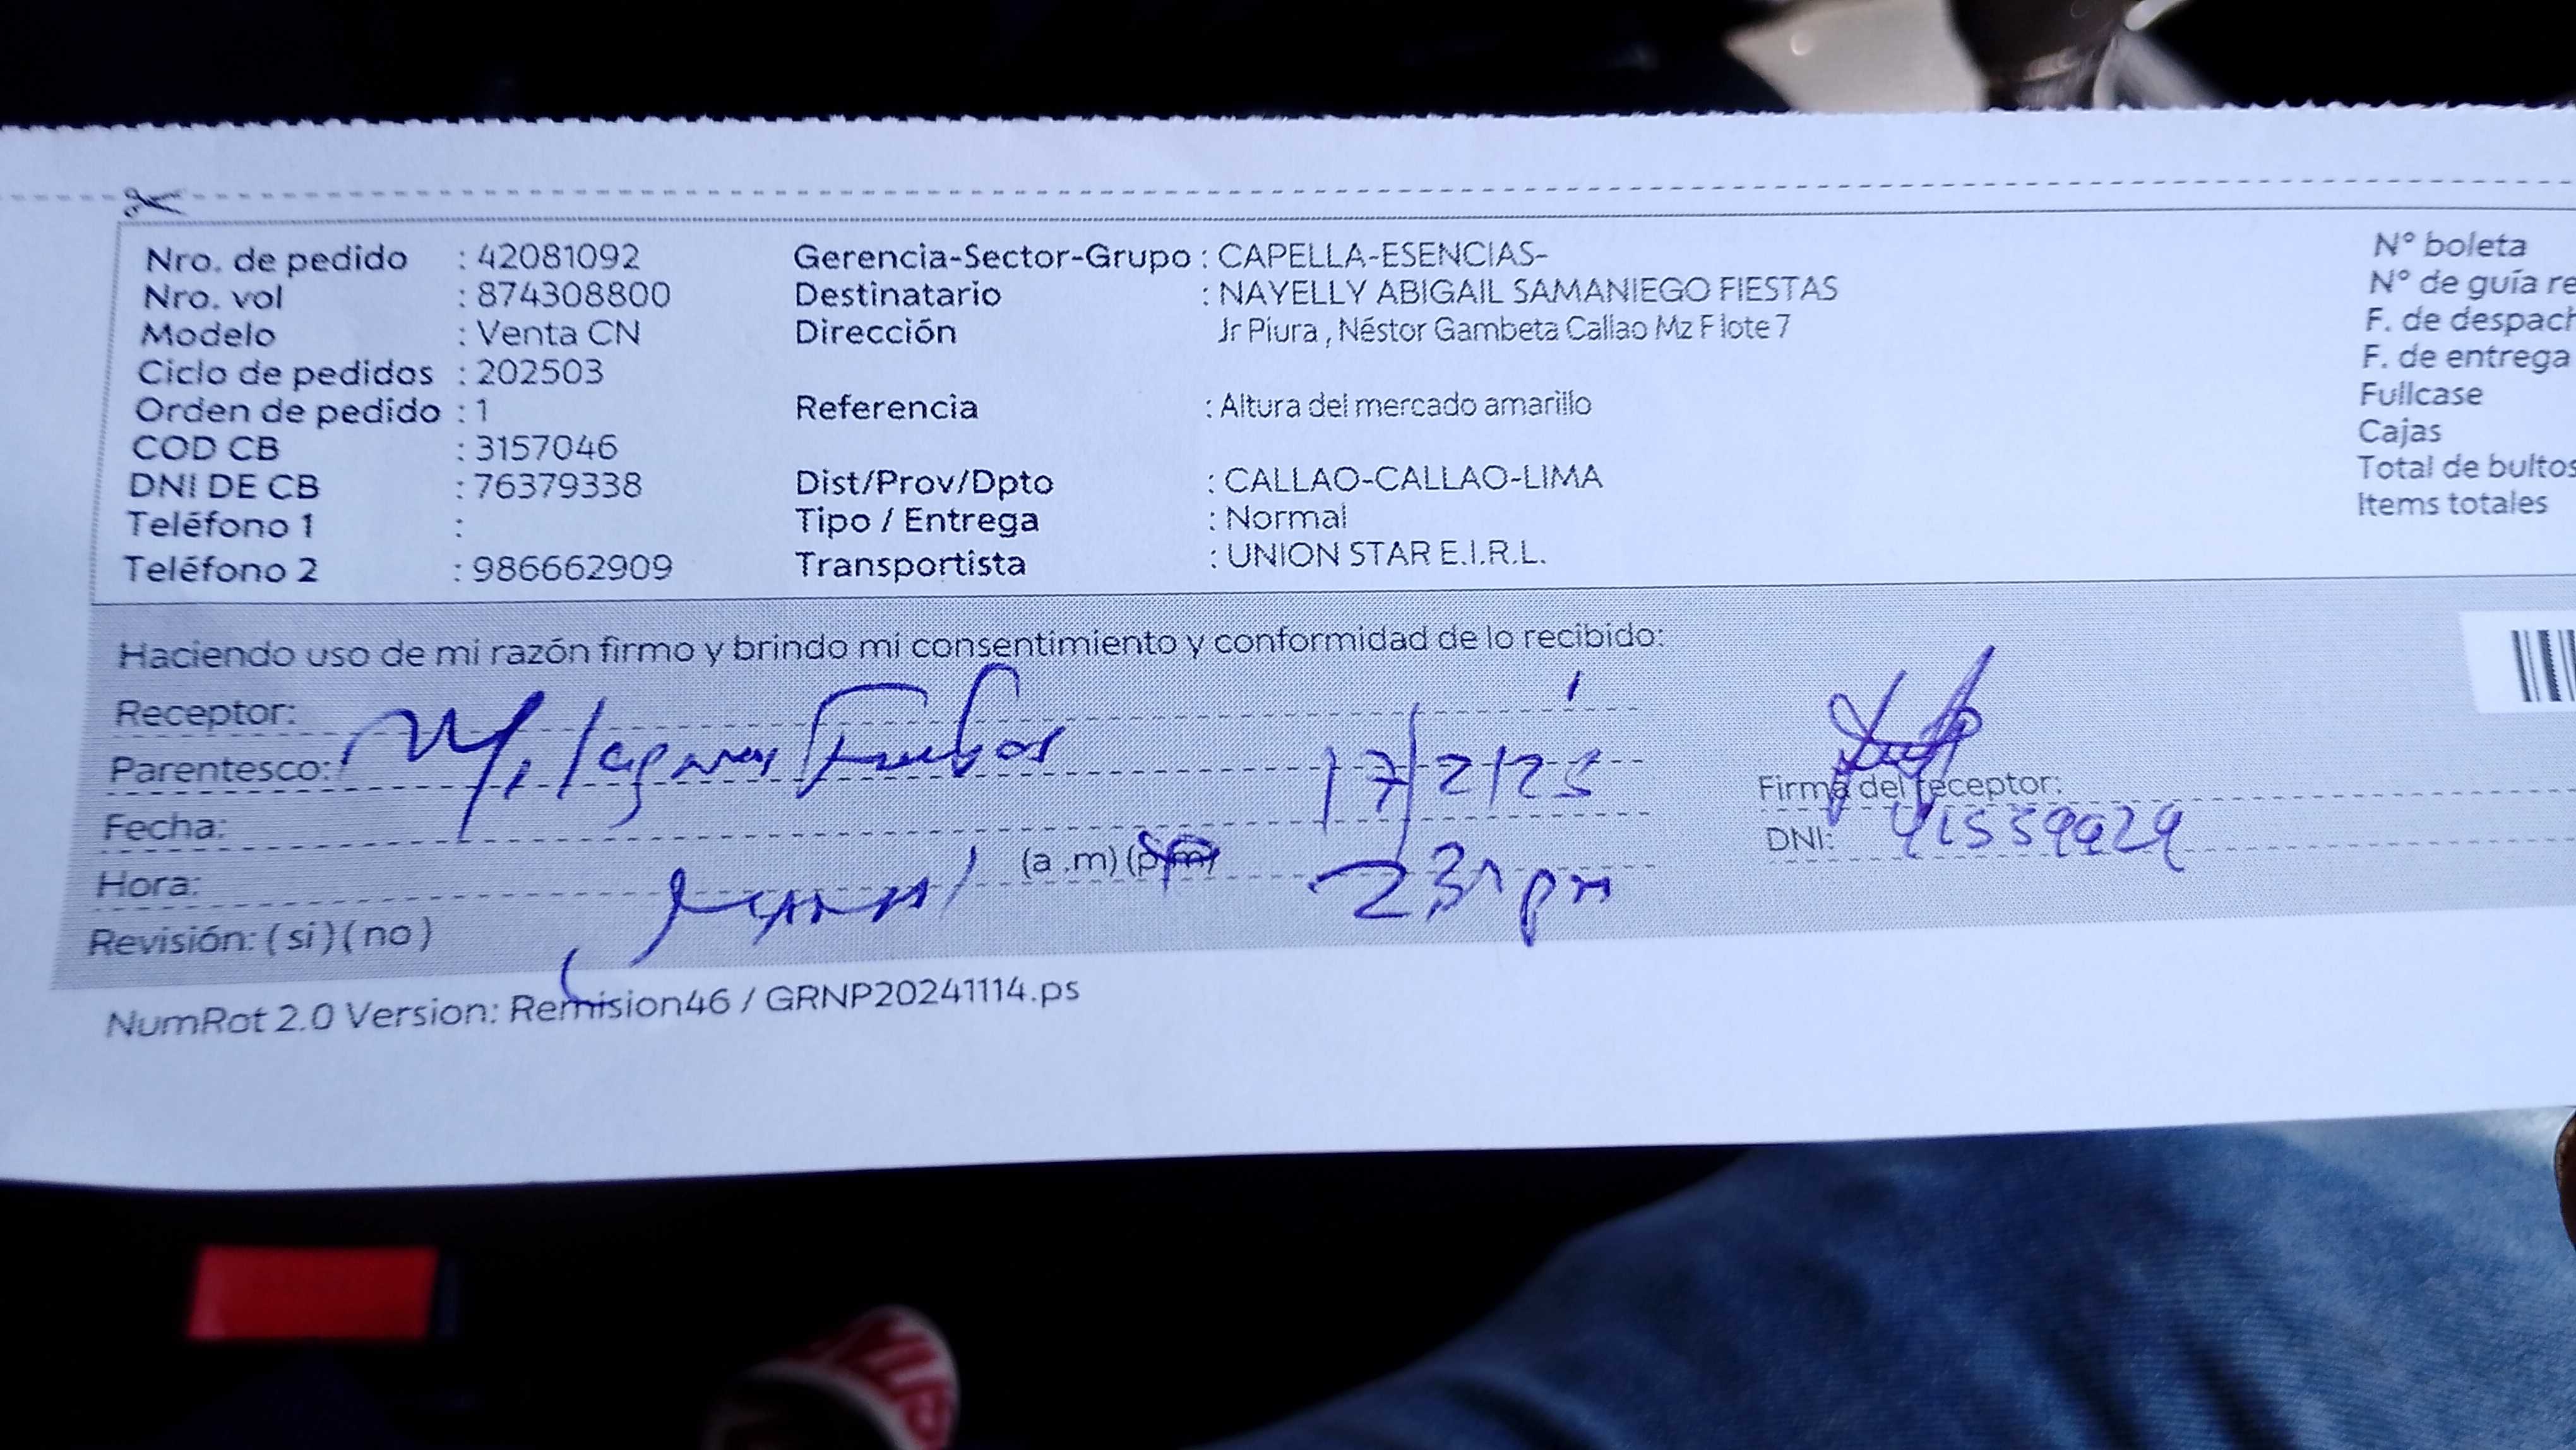 Nro. de pedido : 42081092 Gerencia-Sector-Grupo : CAPELLA-ESENCIAS- N° boleta
Nro. vol : 874308800 Destinatario : NAYELLY ABIGAIL SAMANIEGO FIESTAS N° de guía re
Modelo : Venta CN Dirección Jr Piura , Néstor Gambeta Callao Mz F lote 7 F. de despach
Ciclo de pedidos : 202503 F. de entrega
Orden de pedido : 1 Referencia : Altura del mercado amarillo Fullcase
COD CB : 3157046 Cajas
DNI DE CB : 76379338 Dist/Prov/Dpto : CALLAO-CALLAO-LIMA Total de bultos
Teléfono 1 : Tipo / Entrega : Normal Items totales
Teléfono 2 : 986662909 Transportista : UNION STAR E.I.R.L.
Haciendo uso de mi razón firmo y brindo mi consentimiento y conformidad de lo recibido:
Receptor:
Parentesco: Milagros 17/2/25 Firma del receptor:
Fecha: DNI: 41559929
Hora: (a .m) (p.m) 231 pm
Revisión: ( si ) ( no )
NumRot 2.0 Version: Remision46 / GRNP20241114.ps